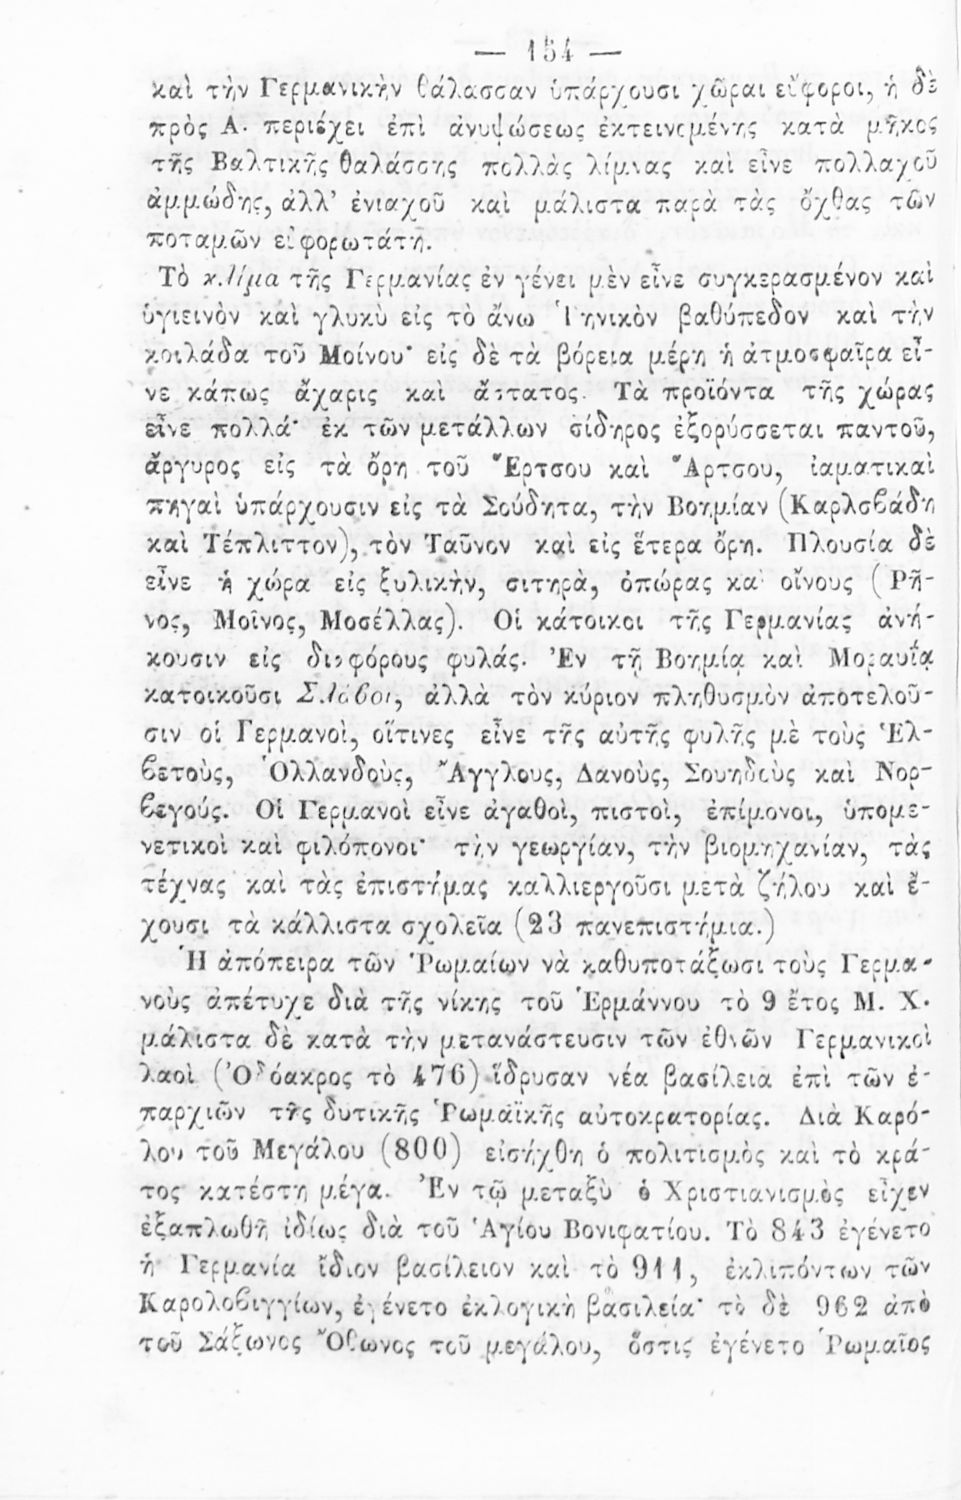 — 154 —
καὶ τὴν Γερμανικὴν θάλασσαν ὑπάρχουσι χῶραι εὔφοροι, ἡ δὲ
πρὸς Α· περιέχει ἐπὶ ἀνυψώσεως ἐκτεινομένης κατὰ μῆκος
τῆς Βαλτικῆς θαλάσσης πολλὰς λίμνας καὶ εἶνε πολλαχοῦ
ἀμμώδης, ἀλλ’ ἐνιαχοῦ καὶ μάλιστα παρὰ τὰς ὄχθας τῶν
ποταμῶν εὐφορωτάτη.
Τὸ κλῖμα τῆς Γερμανίας ἐν γένει μὲν εἶνε συγκερασμένον καὶ
ὑγιεινὸν καὶ γλυκὺ εἰς τὸ ἄνω Ῥηνικὸν βαθύπεδον καὶ τὴν
κοιλάδα τοῦ Μοίνου· εἰς δὲ τα βόρεια μέρη ἡ ἀτμοσφαῖρα εἶ-
νε κάπως ἄχαρις καὶ ἄστατος. Τὰ προϊόντα τῆς χώρας
εἶνε πολλά· ἐκ τῶν μετάλλων σίδηρος ἐξορύσσεται παντοῦ,
ἄργυρος εἰς τὰ ὄρη τοῦ Ἔρτσου καὶ Ἄρτσου, ἰαματικαὶ
πηγαὶ ὑπάρχουσιν εἰς τὰ Σούδητα, τὴν Βοημίαν (Καρλσβάδη
καὶ Τέπλιττον), τὸν Ταῦνον καὶ εἰς ἕτερα ὄρη. Πλουσία δὲ
εἶνε ἡ χώρα εἰς ξυλικὴν, σιτηρὰ, ὀπώρας καὶ οἴνους (Ρῆ-
νος, Μοῖνος, Μοσέλλας). Οἱ κάτοικοι τῆς Γερμανίας ἀνή-
κουσιν εἰς διαφόρους φυλάς. Ἐν τῇ Βοημίᾳ καὶ Μοραυΐᾳ
κατοικοῦσι Σλάβοι, ἀλλὰ τὸν κύριον πληθυσμὸν ἀποτελοῦ-
σιν οἱ Γερμανοὶ, οἵτινες εἶνε τῆς αὐτῆς φυλῆς μὲ τοὺς Ἑλ-
βετοὺς, Ὁλλανδοὺς, Ἄγγλους, Δανοὺς, Σουηδοὺς καὶ Νορ-
βεγούς. Οἱ Γερμανοὶ εἶνε ἀγαθοὶ, πιστοὶ, ἐπίμονοι, ὑπομε-
νετικοὶ καὶ φιλόπονοι· τὴν γεωργίαν, τὴν βιομηχανίαν, τὰς
τέχνας καὶ τὰς ἐπιστήμας καλλιεργοῦσι μετὰ ζήλου καὶ ἔ-
χουσι τὰ κάλλιστα σχολεῖα (23 πανεπιστήμια.)
Ἡ ἀπόπειρα τῶν Ῥωμαίων νὰ καθυποτάξωσι τοὺς Γερμα-
νοὺς ἀπέτυχε διὰ τῆς νίκης τοῦ Ἑρμάννου τὸ 9 ἔτος Μ. Χ.
μάλιστα δὲ κατὰ τὴν μετανάστευσιν τῶν ἐθνῶν Γερμανικοὶ
λαοὶ (Ὀδόακρος τὸ 476) ἵδρυσαν νέα βασίλεια ἐπὶ τῶν ἐ-
παρχιῶν τῆς δυτικῆς Ῥωμαϊκῆς αὐτοκρατορίας. Διὰ Καρό-
λου τοῦ Μεγάλου (800) εἰσήχθη ὁ πολιτισμὸς καὶ τὸ κρά-
τος κατέστη μέγα. Ἐν τῷ μεταξὺ ὁ Χριστιανισμὸς εἶχεν
ἐξαπλωθῆ ἰδίως διὰ τοῦ Ἁγίου Βονιφατίου. Τὸ 843 ἐγένετο
ἡ Γερμανία ἴδιον βασίλειον καὶ τὸ 911, ἐκλιπόντων τῶν
Καρολοβιγγίων, ἐγένετο ἐκλογικὴ βασιλεία· τὸ δὲ 962 ἀπὸ
τοῦ Σάξωνος Ὄθωνος τοῦ μεγάλου, ὅστις ἐγένετο Ῥωμαῖος